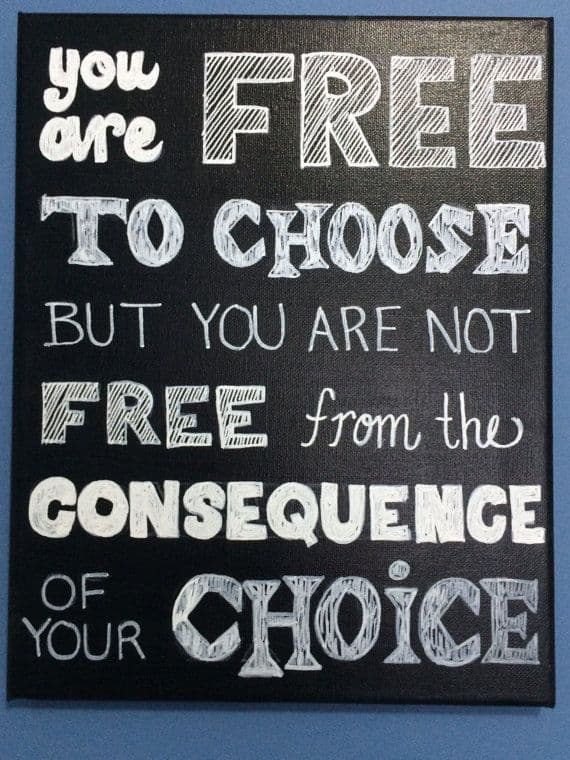 you
are FREE
TO CHOOSE
BUT YOU ARE NOT
FREE from the
CONSEQUENCE
OF
YOUR CHOiCE